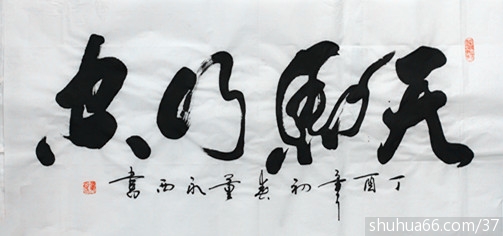 天馬行空
丁酉年初春董永西書
shuhua66.com/37